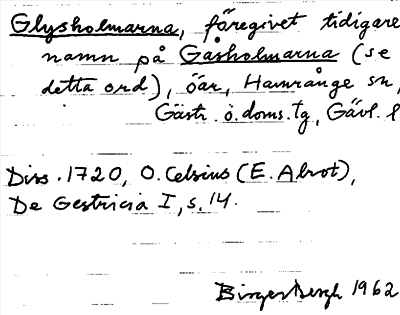 Glysholmarna, föregivet tidigare
namn på Gåsholmarna (se
detta ord), öar, Hamrånge sn,
Gästr. ö. doms. tg, Gävl. l
Diss. 1720, O. Celsius (E. Alrot),
De Gestricia I, s. 14.
Birger Bergh 1962